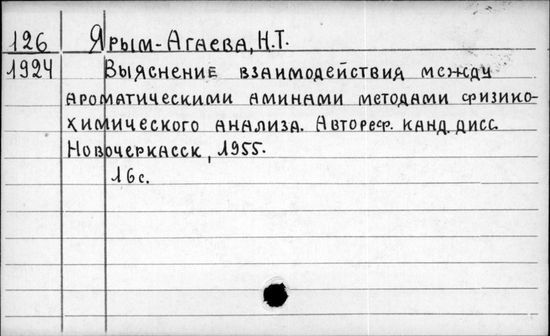 126 Ярым-Агаева, Н.Т.
1924 Выяснение взаимодействия между
ароматическими аминами методами физико-
химического анализа. Автореф. канд. дисс.
Новочеркасск, 1955.
16с.